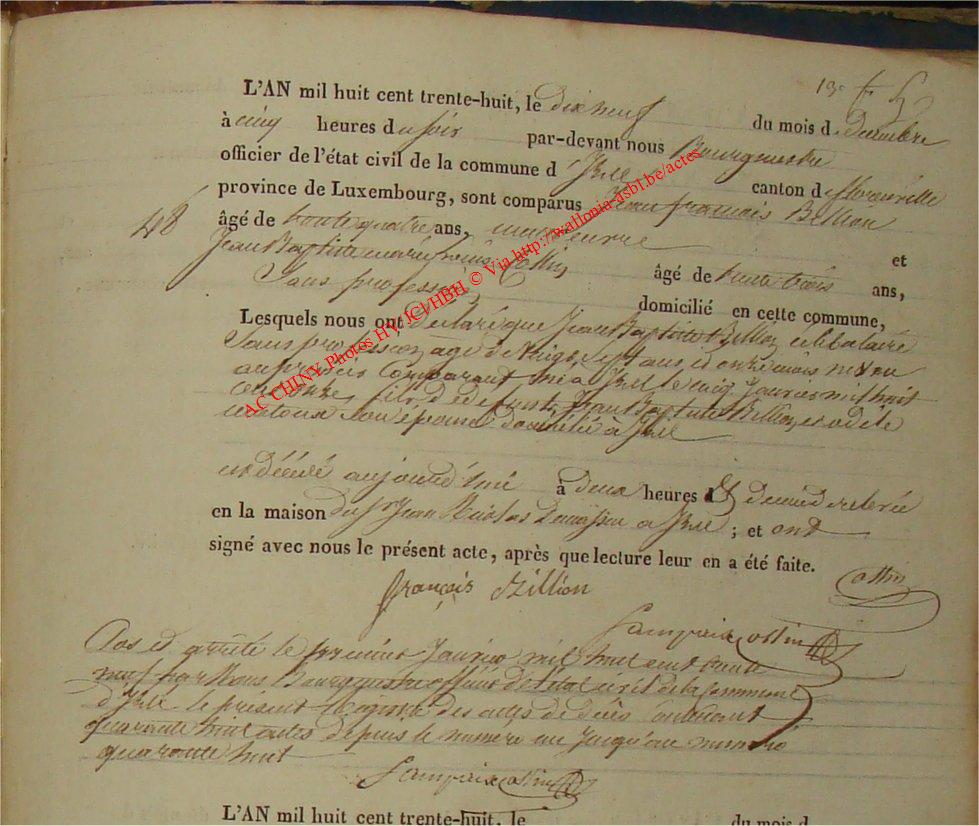 13e f 5
L'AN mil huit cent trente-huit, le dix neuf du mois d decembre
à cinq heures du soir par-devant nous Bourgmestre
officier de l'état civil de la commune d'Izel canton de florenville
province de Luxembourg, sont comparus Jean françois Billion
48
âgé de trente quatre ans, manoeuvre et
Jean Baptiste marie Collin âgé de trente trois ans,
Sans profession domicilié en cette commune,
Lesquels nous ont déclaré que Jean Baptiste Billion célibataire
Sans profession agé de vingt sept ans et onze mois neveu
au premier Comparant né à Izel le cinq Janvier mil huit
cent onze, fils de defunt Jean Baptiste Billion, et
son épouse domicilié à Izel
est décédé aujourd'hui à deux heures et demie de relevée
en la maison du Sr Jean Nicolas à Izel ; et ont
signé avec nous le présent acte, après que lecture leur en a été faite.
Collin
françois Billion
Lampaix Collin
Clos et arrêté le premier Janvier mil huit cent trente
neuf par Nous Bourgmestre officier de l'etat civil de la Commune
d'Izel le présent Registre des actes de décès Contenant
quarante huit actes depuis le numero un Jusqu'au numero
quarante huit
Lampaix Collin
L'AN mil huit cent trente-huit, le du mois d
AC CHINY Photos HV JCl/HBH, © Via http://wallonia-asbl.be/actes